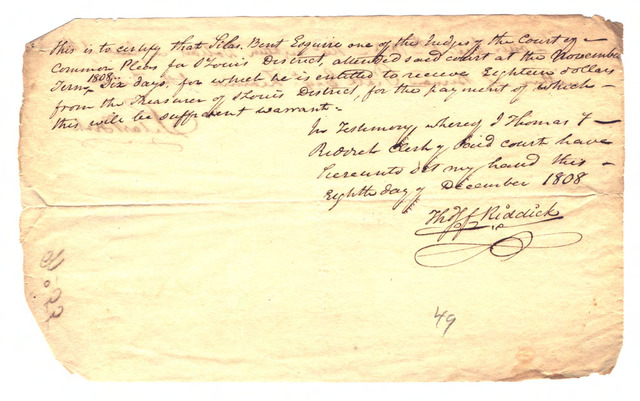 This is to certify that Silas Bent Esquire one of the Judges of the Court of
Common Pleas for St Louis District, attended said court at the November
Term 1808 Six days, for which he is entitled to receive Eighteen dollars
from the Treasurer of St Louis District, for the payment of which
this will be sufficient warrant.
In Testimony whereof I Thomas F
Riddick Clerk of said court have
hereunto set my hand this
Eighth day of December 1808
Thos F Riddick
49